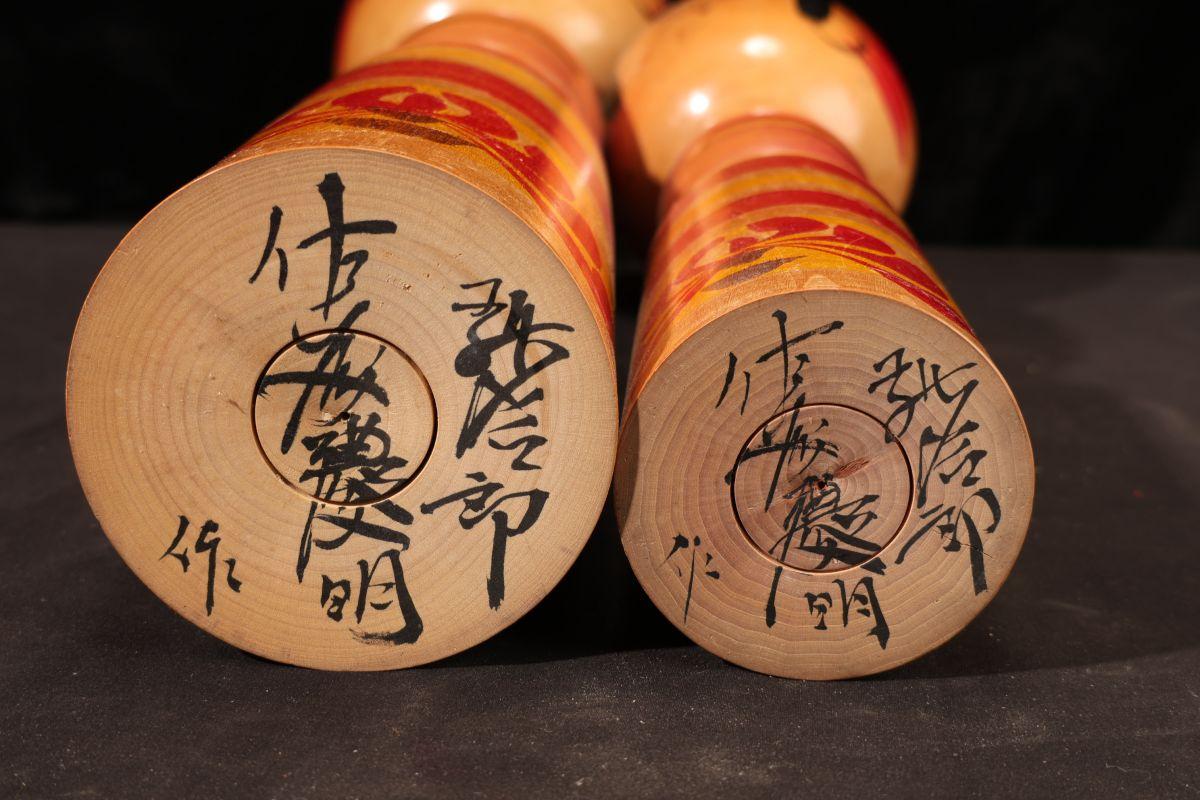 弥治郎
佐藤慶明
作
弥治郎
佐藤慶明
作